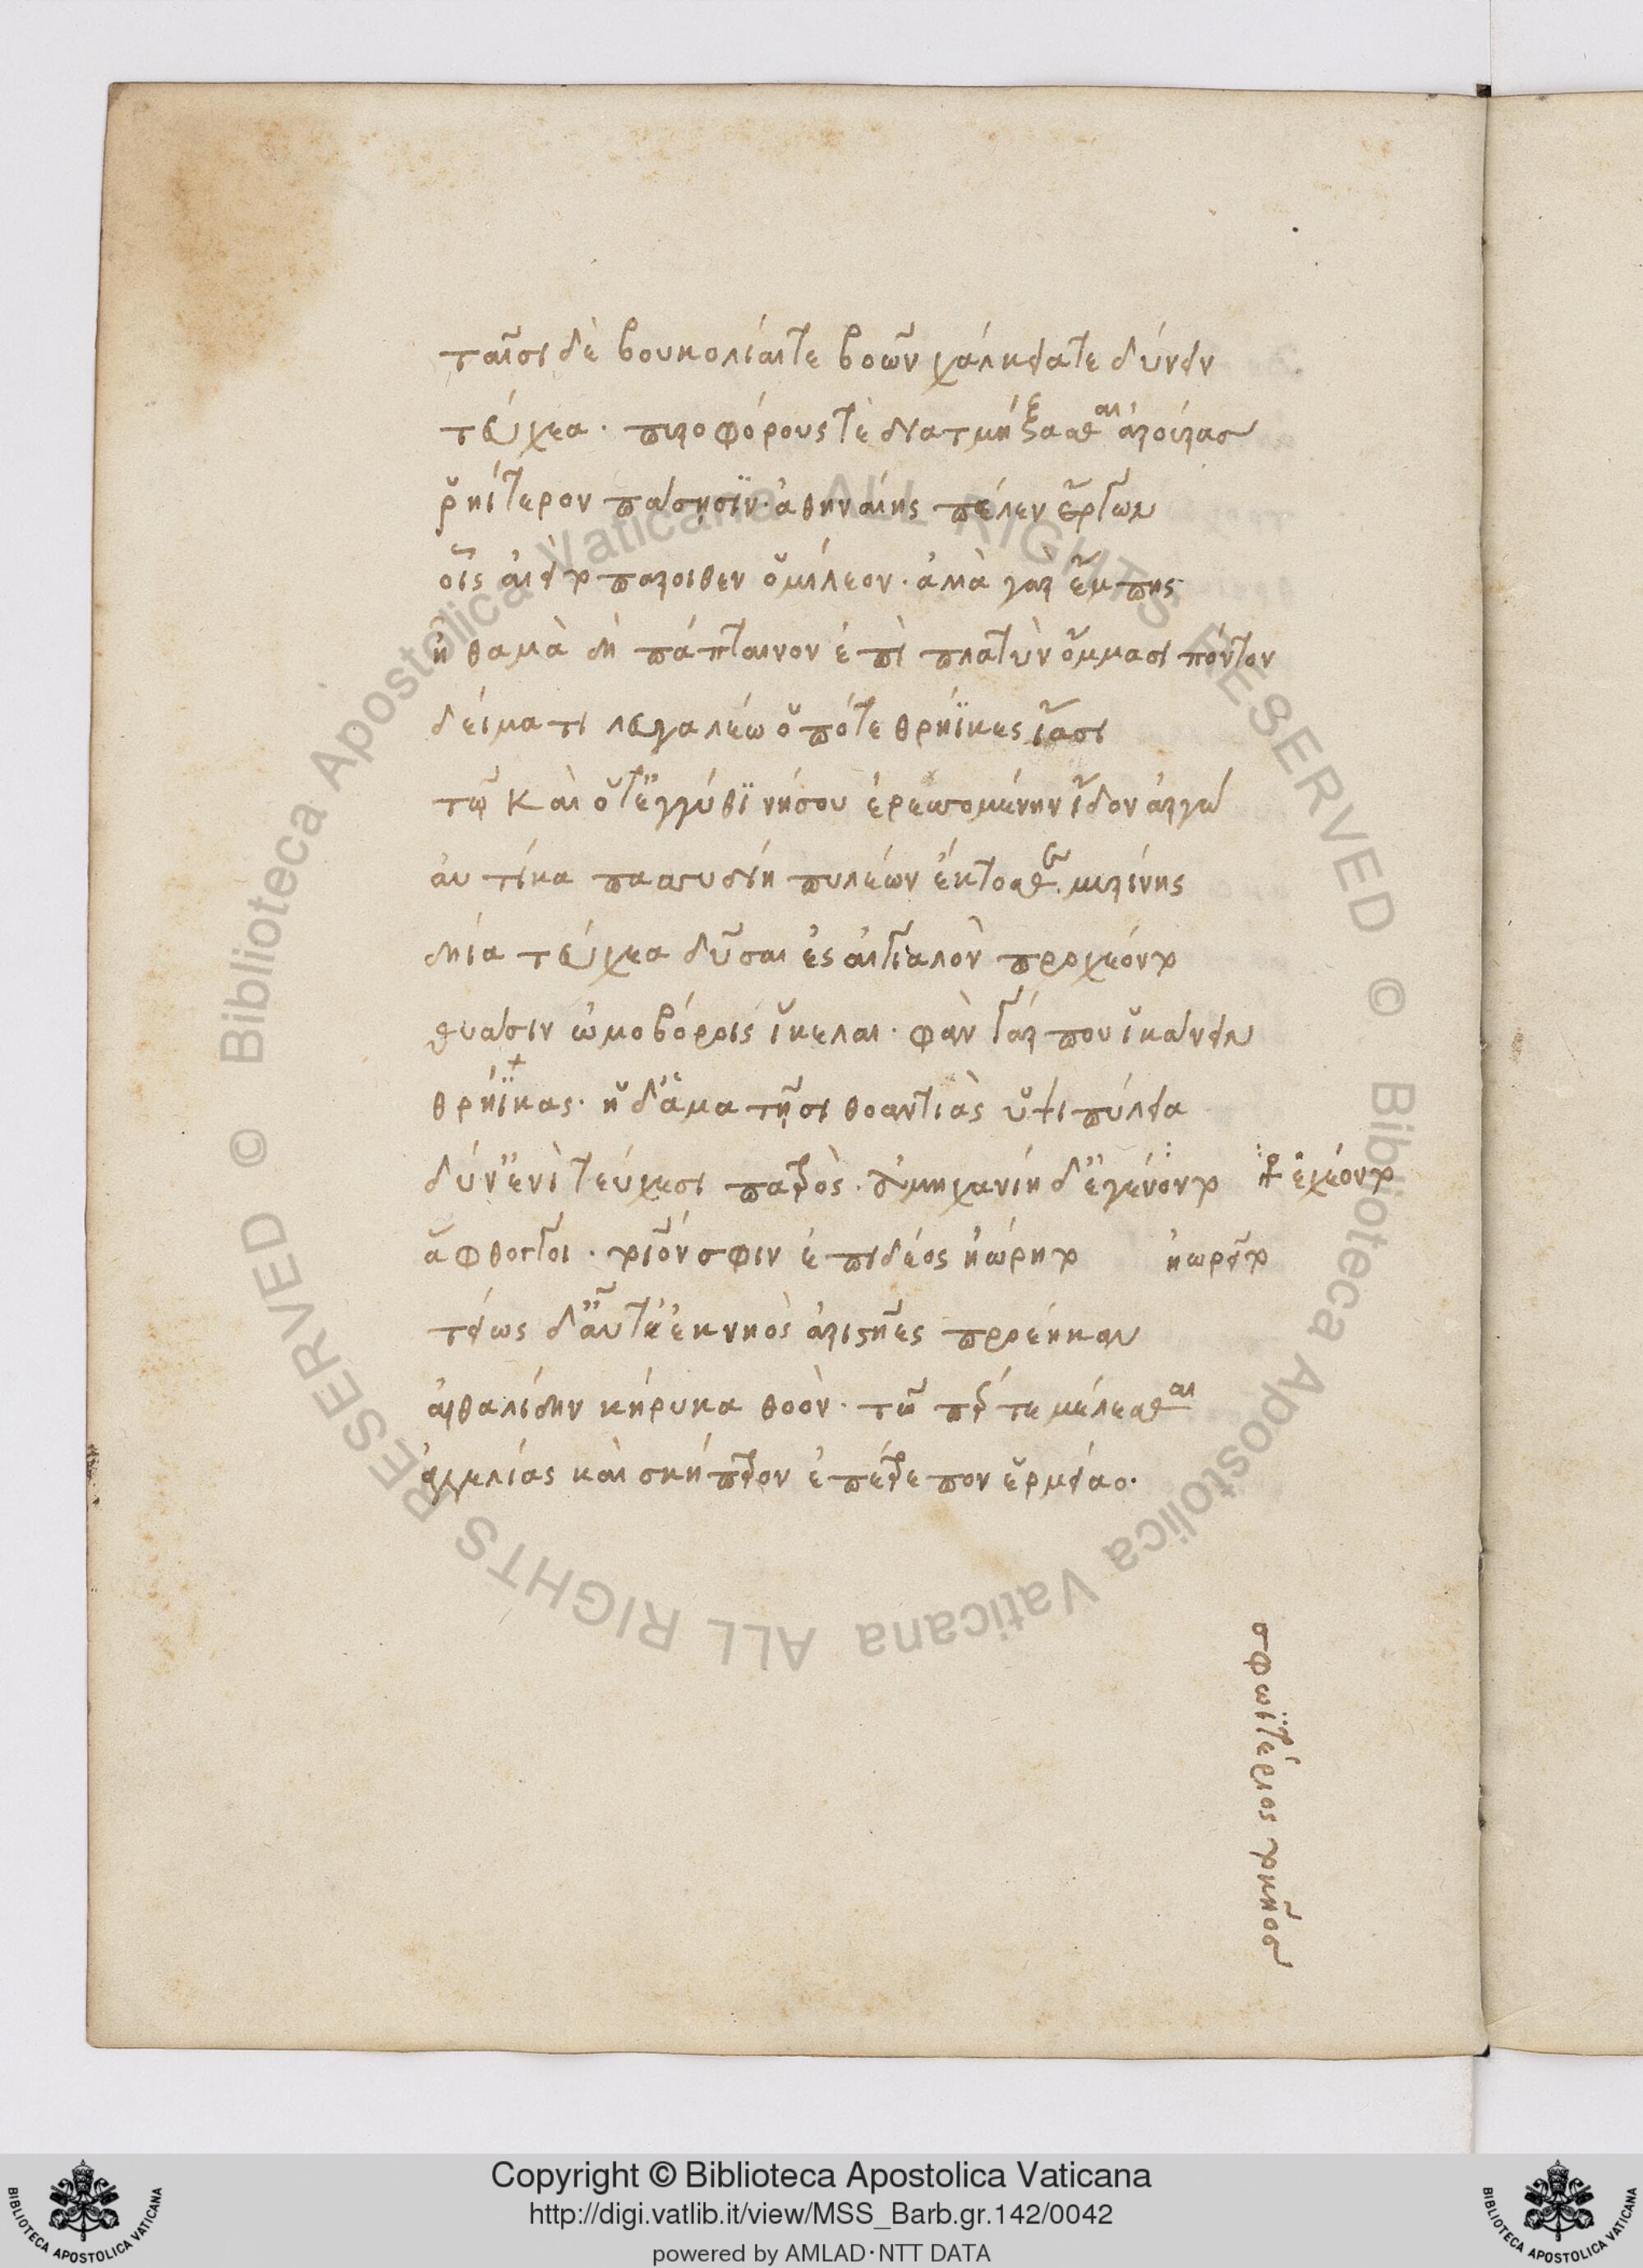 ταῖσι δὲ βουκολίαι τε βοῶν χάλκειά τε δύνειν
τεύχεα. πυροφόρους τὲ διατμήξασθαι ἀρούρας
ῥηΐτερον πάσῃσιν ἀθηναίης πέλεν ἔργων
οἷς αἰεὶ τὸ πάροιθεν ὁμίλεον. ἀλλὰ γὰρ ἔμπης
ἦ θαμὰ δὴ πάπταινον ἐπὶ πλατὺν ὄμμασι πόντον
δείματι λευγαλέω ὁπότε θρήϊκες ἴασι
τῷ καὶ ὅτ' ἐγγύθϊ νήσου ἐρεσσομένην ἴδον ἀργὼ
αὐτίκα πασσυδίη πυλέων ἔκτοσθε μυρίνης
δήϊα τεύχεα δῦσαι ἐς αἰγιαλὸν προχέοντο
θυάσιν ὠμοβόροις ἴκελαι. φὰν γάρ που ἱκάνειν
θρήϊκας. ἡ δ' ἅμα τῇσι θοαντιὰς ὑψιπύλεια
δύν' ἐνὶ τεύχεσι πατρὸς. ἀμηχανίη δ' ἐγένοντο
ἐχέοντο
ἄφθογγοι. τοῖόν σφιν ἐπὶ δέος ἠώρητο
ἠωρεῖτο
τείως δ' αὖτ' ἐκ νηὸς ἀριστῆες προέηκαν
αἰθαλίδην κήρυκα θοὸν. τῷ πέρ τε μέλεσθαι
ἀγγελίας καὶ σκήπτρον ἐπέτρεπον ἑρμείαο.
σφωϊτέριος τοκῆος